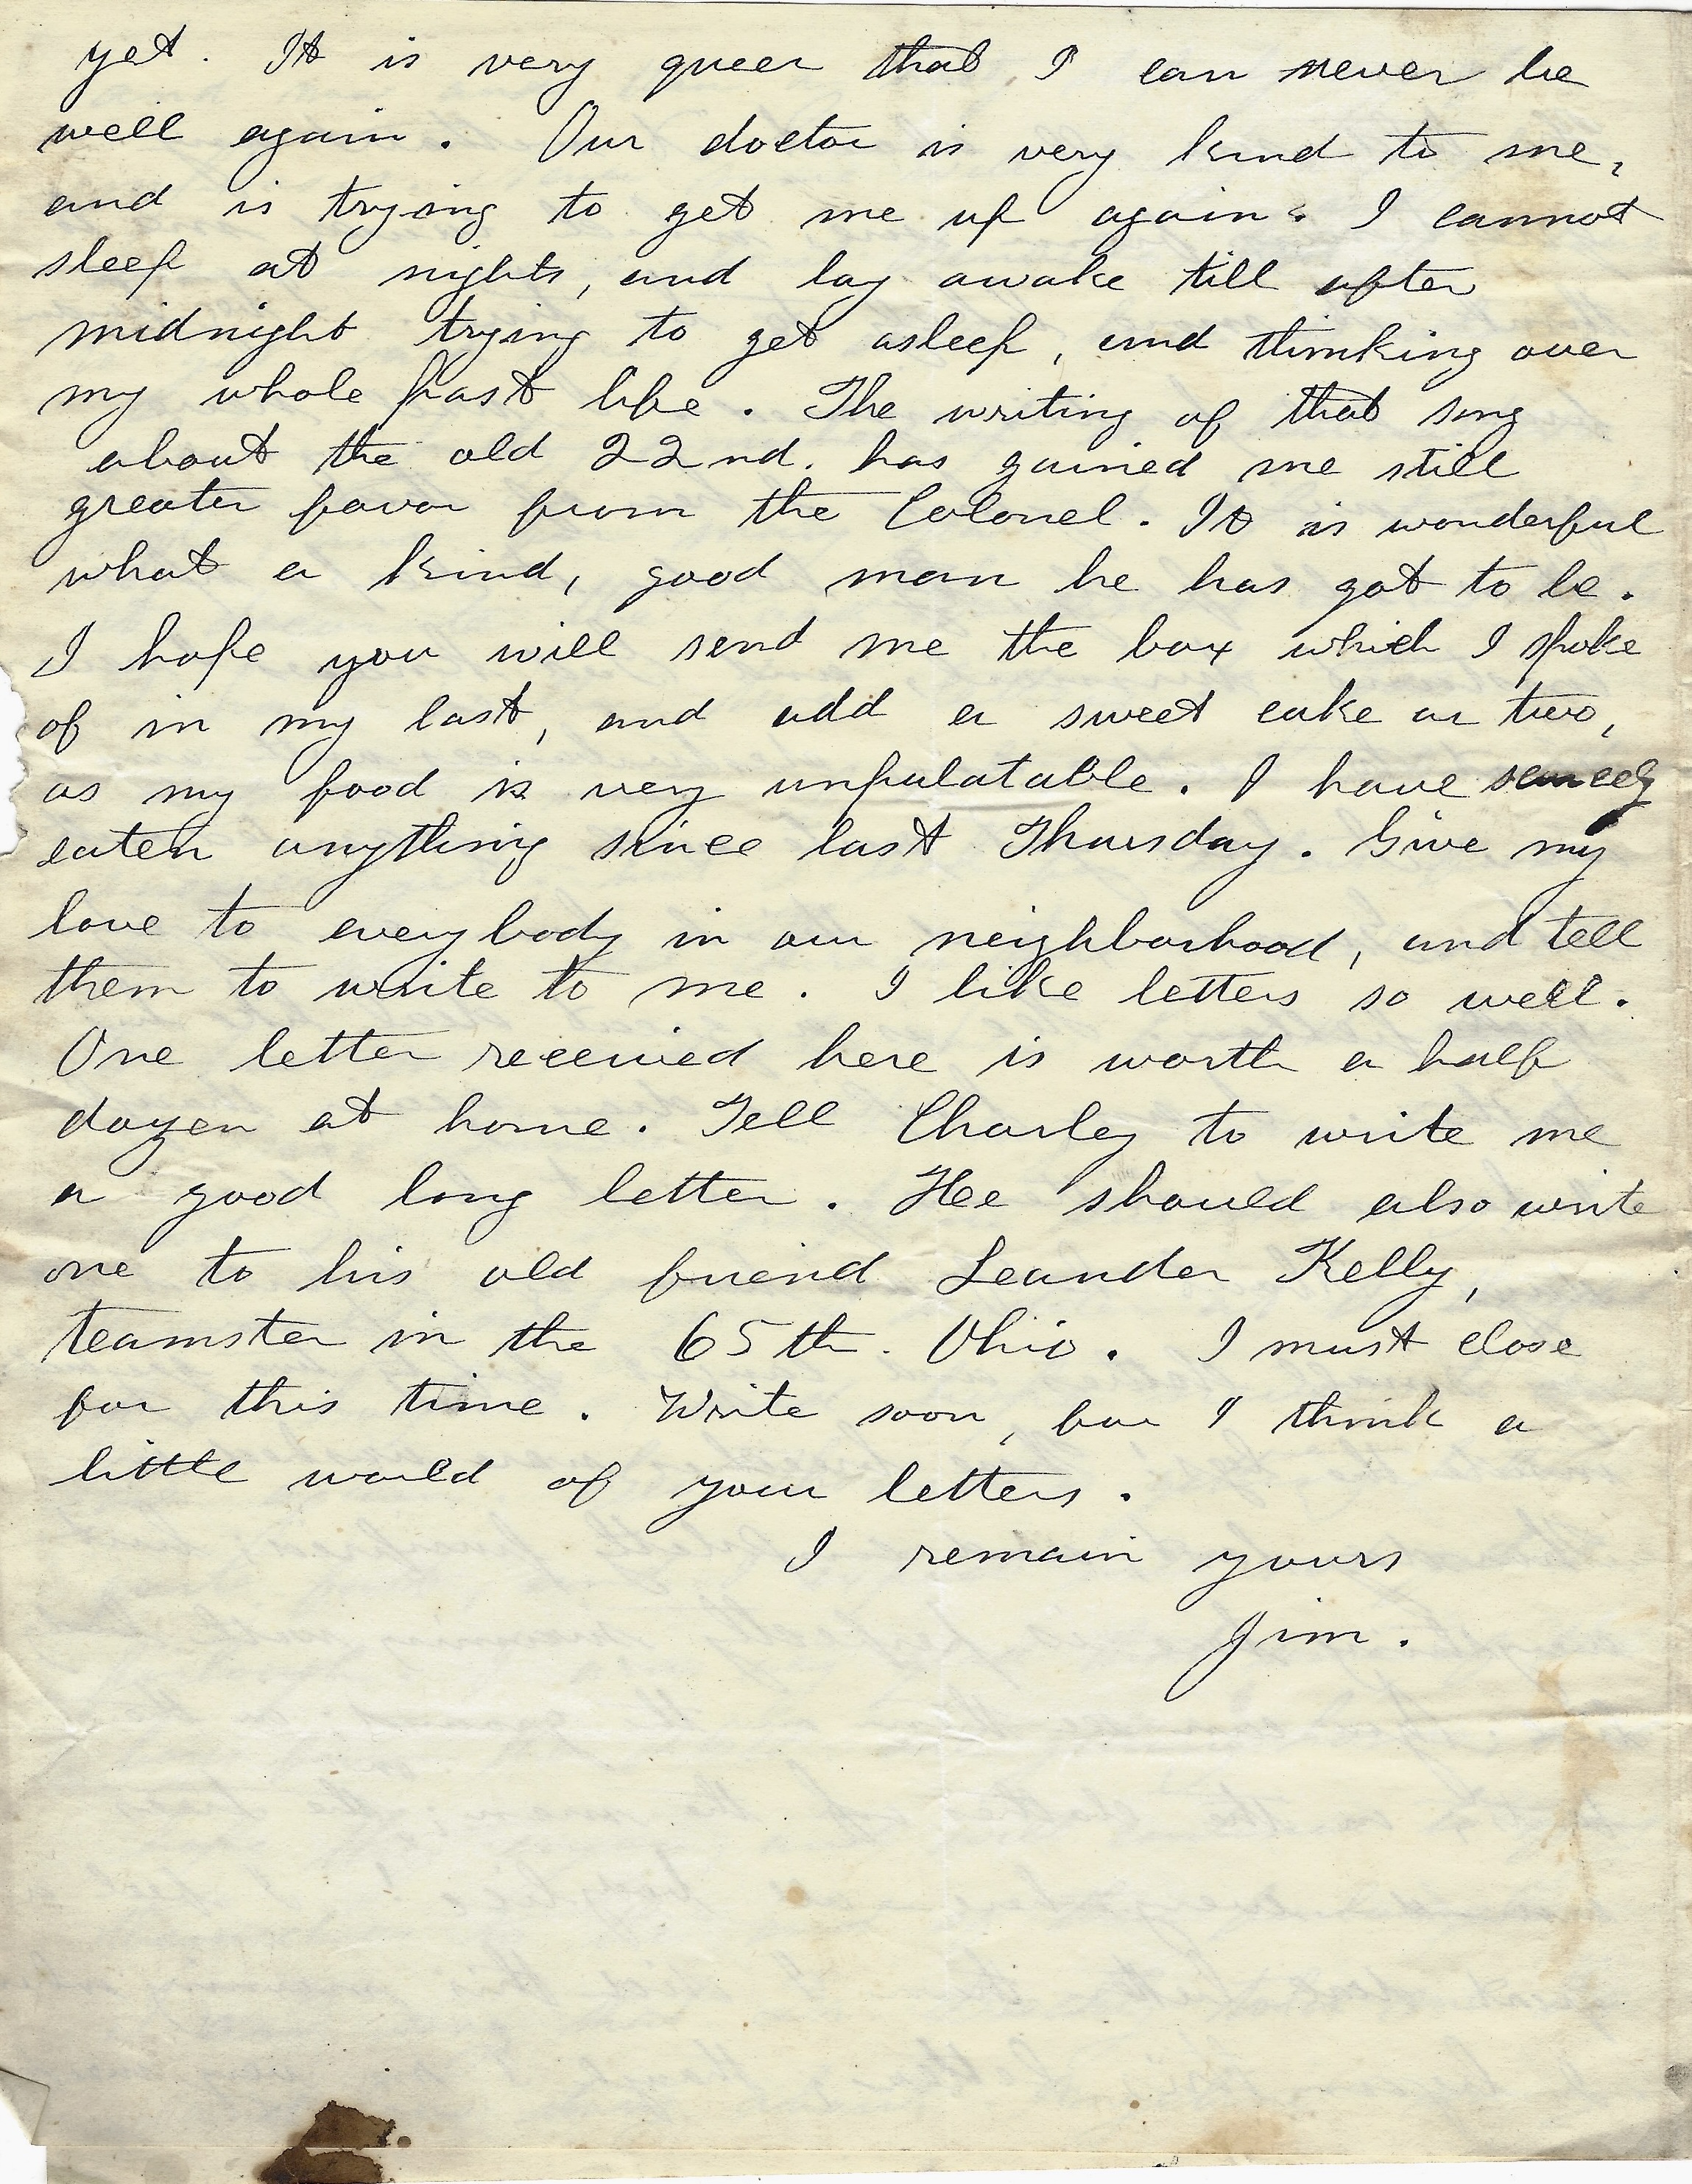 yet. It is very queer that I can never be
well again. Our doctor is very kind to me,
and is trying to get me up again. I cannot
sleep at nights, and lay awake till after
midnight trying to get asleep, and thinking over
my whole past life. The writing of that song
about the old 22nd. has gained me still
greater favor from the Colonel. It is wonderful
what a kind, good man he has got to be.
I hope you will send me the box which I spoke
of in my last, and add a sweet cake or two,
as my food is very unpalatable. I have
eaten anything since last Thursday. Give my
love to everybody in our neighborhood, and tell
them to write to me. I like letters so well.
One letter received here is worth a half
dozen at home. Tell Charley to write me
a good long letter. Hee should also write
one to his old friend Leander Kelly,
teamster in the 65th. Ohio. I must close
for this time. Write soon, for I think a
little world of your letters.
I remain yours
Jim.